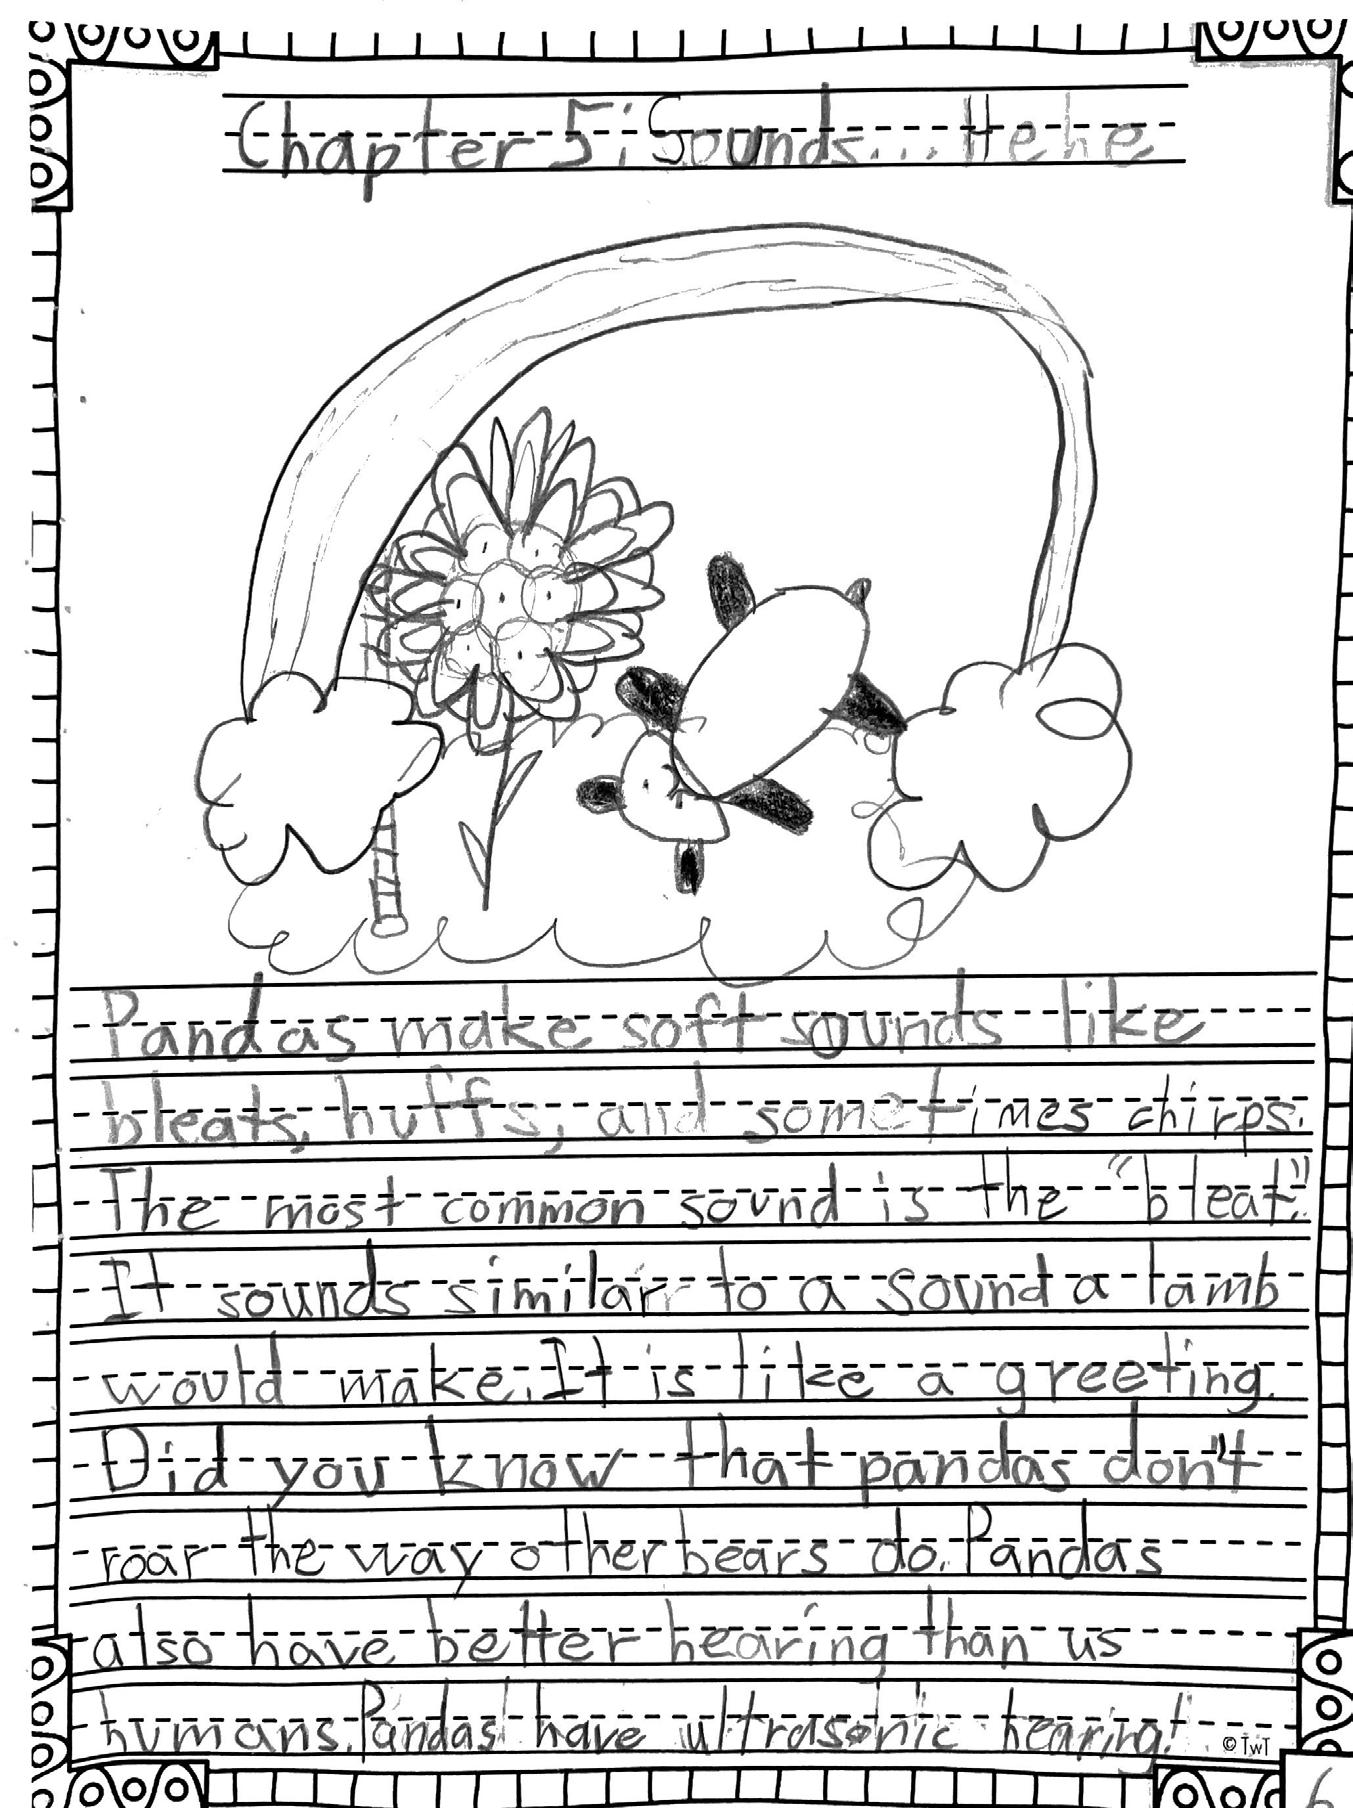 Chapter 5: Sounds... Hehe
Pandas make soft sounds like
bleats, huffs, and sometimes chirps.
The most common sound is the "bleat".
It sounds similar to a sound a lamb
would make. It is like a greeting.
Did you know that pandas don't
roar the way other bears do. Pandas
also have better hearing than us
humans. Pandas have ultrasonic hearing!
© TwT
6